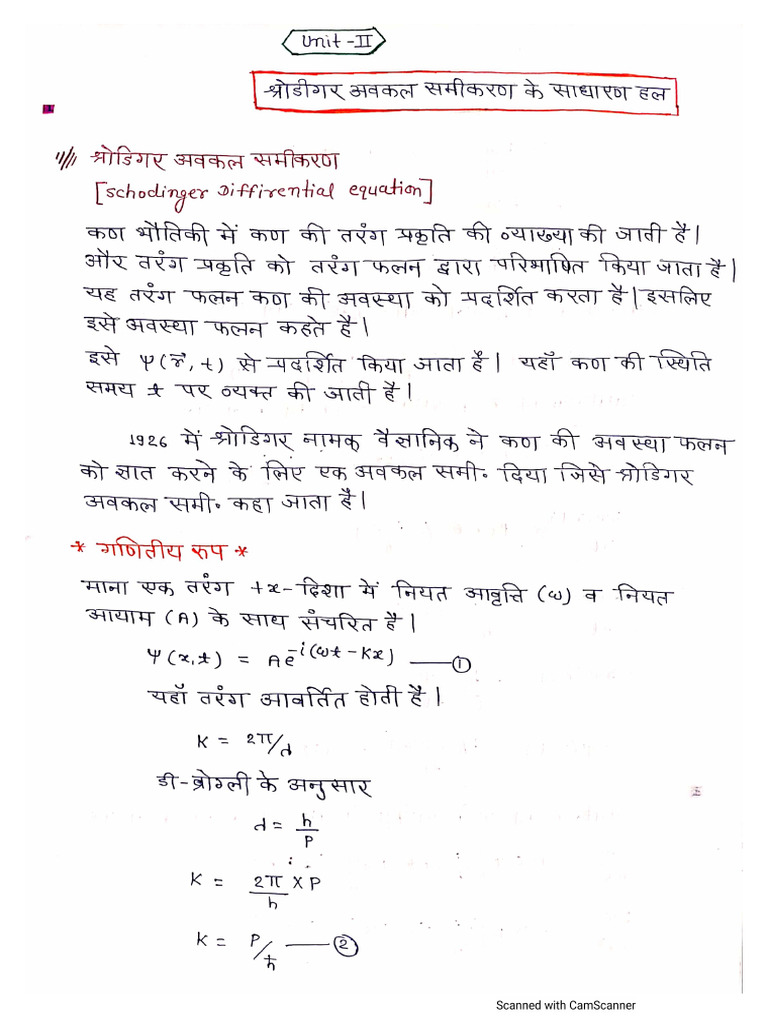 Unit-II
श्रोडीगर अवकल समीकरण के साधारण हल
श्रोडिगर अवकल समीकरण
[schodinger Diffirential equation]
कण भौतिकी में कण की तरंग प्रकृति की व्याख्या की जाती है।
और तरंग प्रकृति को तरंग फलन द्वारा परिभाषित किया जाता है।
यह तरंग फलन कण की अवस्था को प्रदर्शित करता है। इसलिए
इसे अवस्था फलन कहते है।
इसे ψ(r⃗, t) से प्रदर्शित किया जाता है। यहाँ कण की स्थिति
समय t पर व्यक्त की जाती है।
1926 में श्रोडिगर नामक वैज्ञानिक ने कण की अवस्था फलन
को ज्ञात करने के लिए एक अवकल समी. दिया जिसे श्रोडिगर
अवकल समी. कहा जाता है।
* गणितीय रुप *
माना एक तरंग +x-दिशा में नियत आवृत्ति (ω) व नियत
आयाम (A) के साथ संचरित है।
ψ(x,t) = Ae^-i(ωt-Kx) —①
यहाँ तरंग आवर्तित होती है।
K = 2π/λ
डी-ब्रोग्ली के अनुसार
λ = h/P
K = 2π/h × P
K = P/ħ —②
Scanned with CamScanner